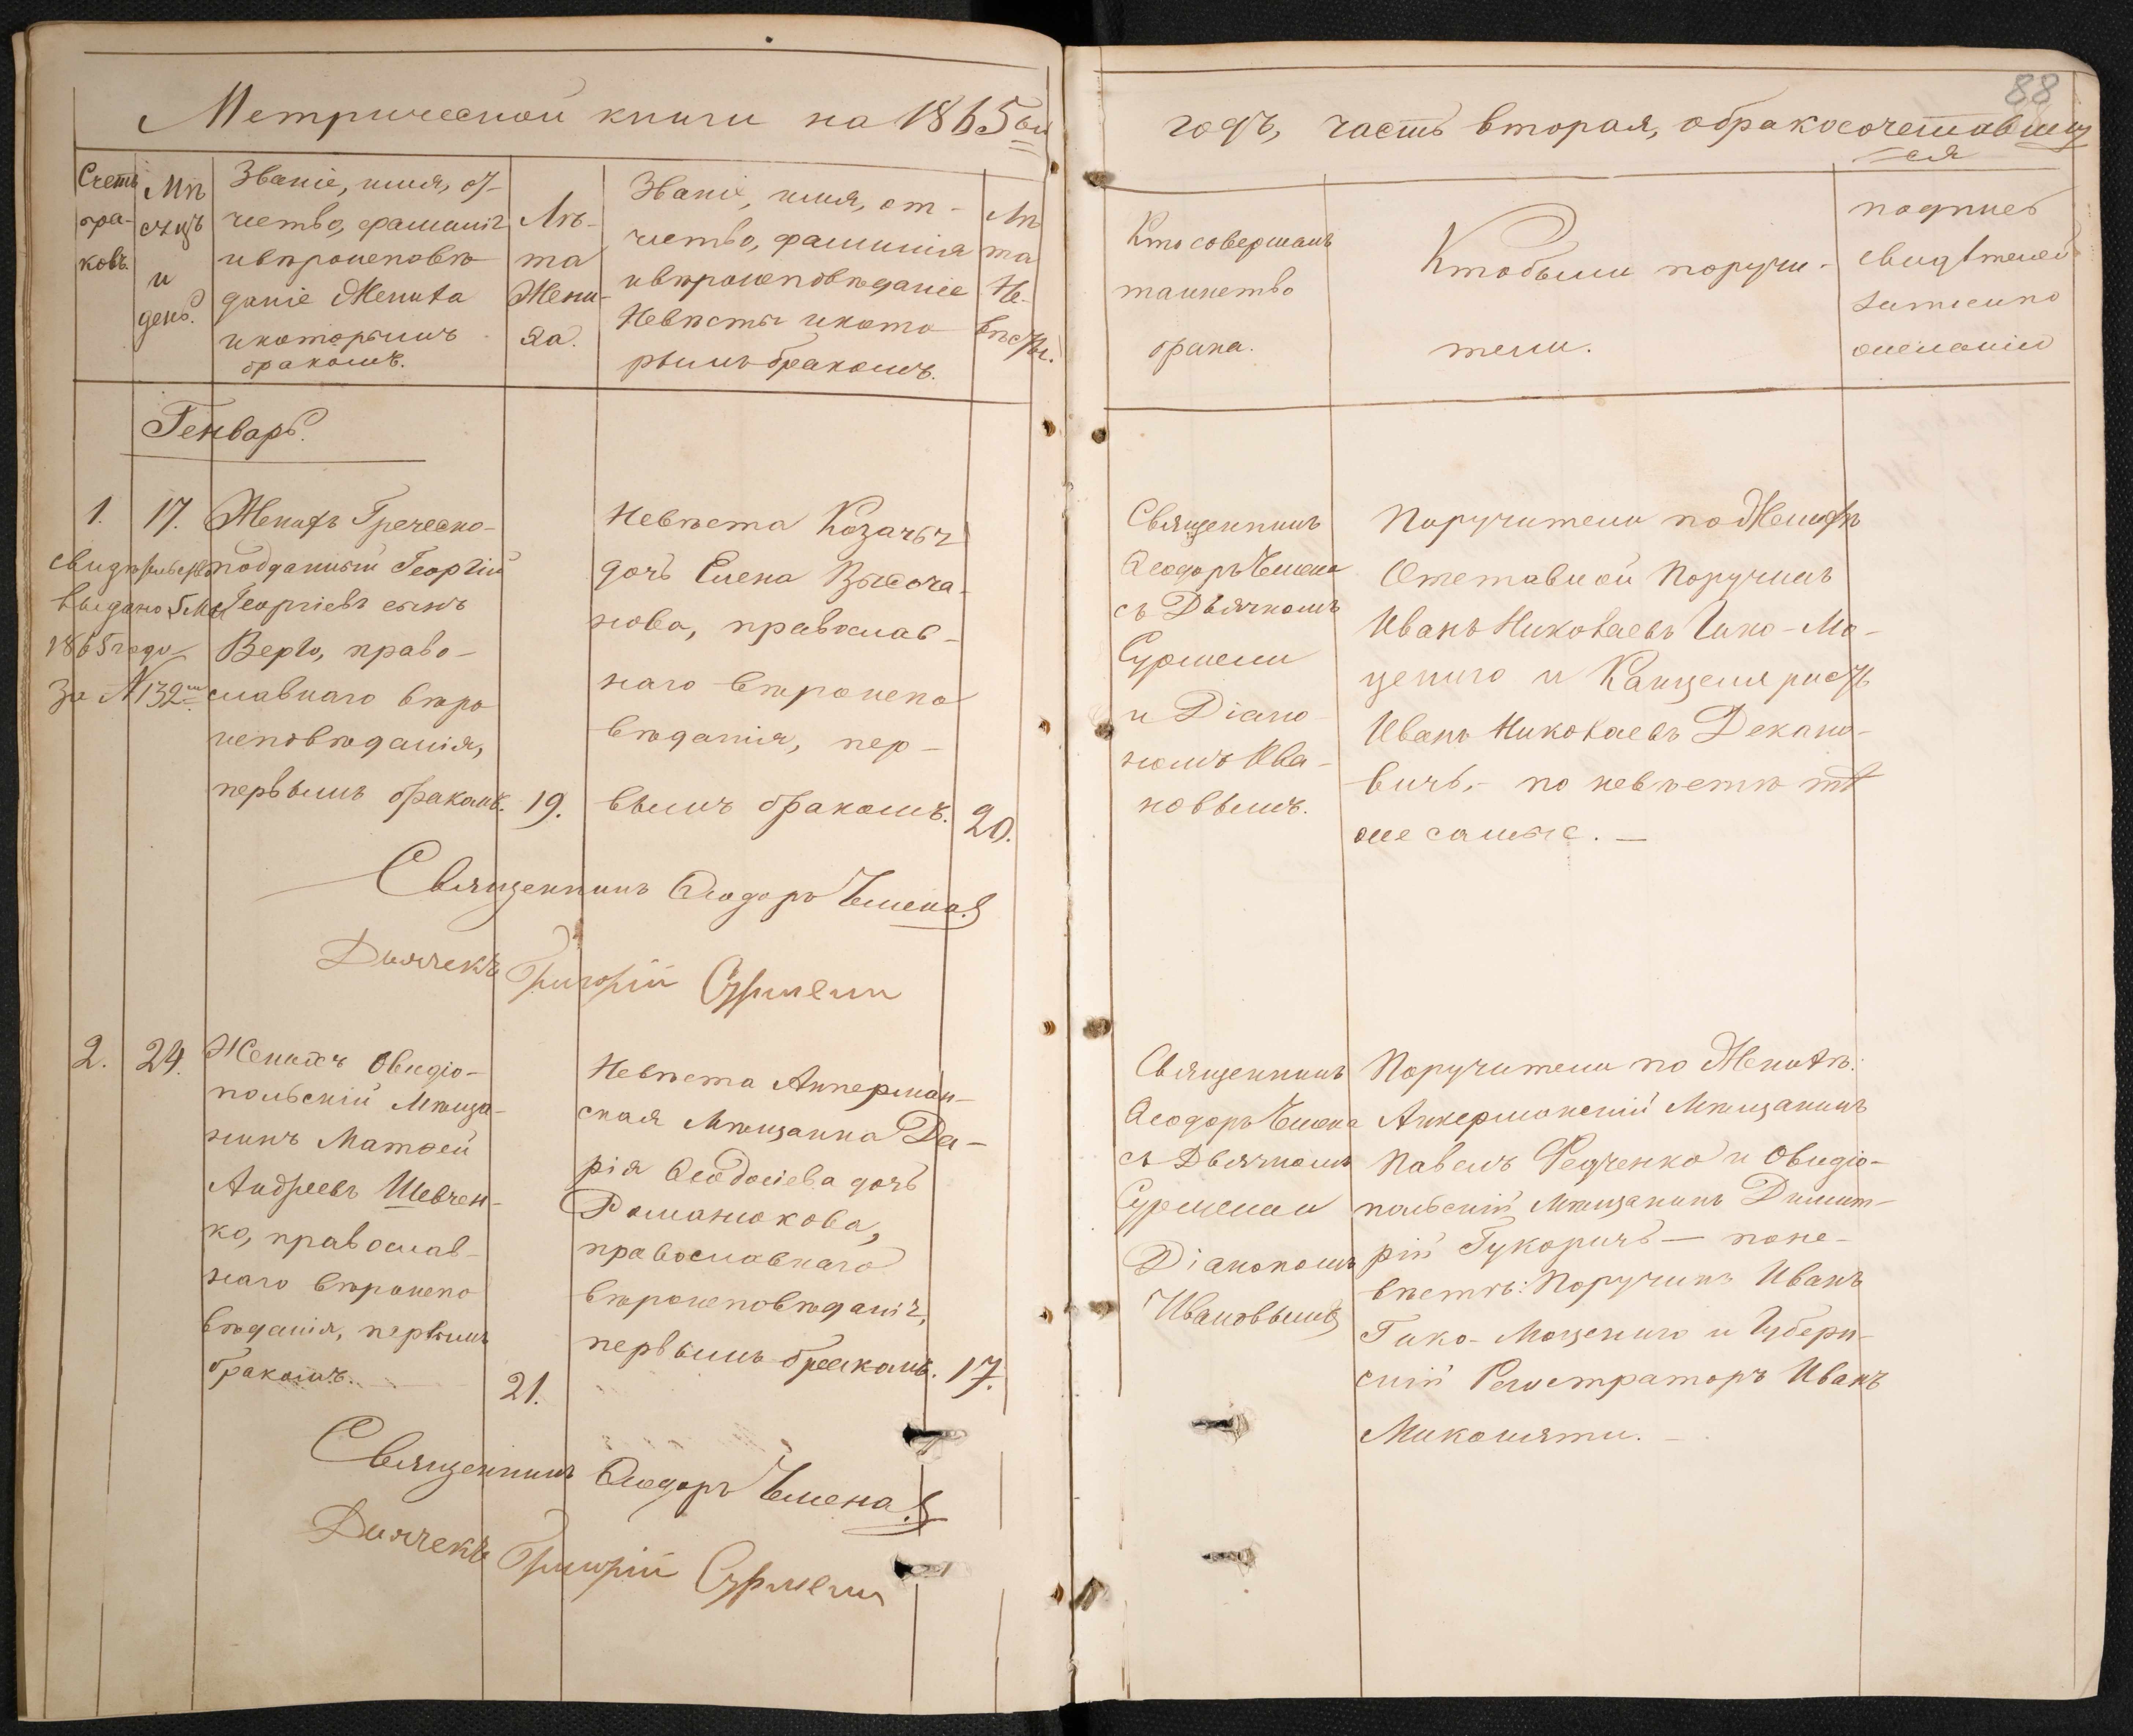 Метрической книги на 1865ый
годъ, часть вторая, о бракосочетавших
ся
88
Счетъ
бра-
ковъ.
Мѣ
сяцъ
и
день.
Званіе, имя, от-
чество, фамилія
и вѣроисповѣ
даніе Жениха
и которымъ
бракомъ.
Лѣ-
та
Жени-
ха.
Званіе, имя, от-
чество, фамилія
и вѣроисповѣданіе
Невѣсты и кото
рымъ бракомъ.
Лѣ
та
Не-
вѣсты.
Кто совершалъ
таинство
брака.
Кто были поручи-
тели.
подпись
свидѣтелей
записи по
желанію
Генварь.
1.
17.
Свидѣтельство
выдано 5 Мая
1865 года
За № 132
Женихъ Греческо-
подданный Георгій
Георгіевъ сынъ
Верго, право-
славнаго вѣро
исповѣданія,
первымъ бракомъ.
19.
Невѣста Козачья
дочь Елена Высоча-
нова, православ-
наго вѣроиспо
вѣданія, пер-
вымъ бракомъ.
20.
Священникъ
Ѳеодоръ Чмена
съ Дьячкомъ
Сурмели
и Діако-
номъ Ива-
новымъ.
Поручители по Женихѣ
Отставной Поручикъ
Иванъ Николаевъ Гико-Мо-
цениго и Канцеляристъ
Иванъ Николаевъ Декано-
вичъ,- по невѣстѣ тѣ
же самые. —
Священникъ Ѳеодоръ Чмена
Дьячекъ Григорій Сурмели
2.
24.
Женихъ Овидіо-
польскій Мѣща-
нинъ Матѳей
Андреевъ Шевчен-
ко, православ-
наго вѣроиспо
вѣданія, первымъ
бракомъ.
21.
Невѣста Аккерман-
ская Мѣщанка Да-
рія Ѳеодосіева дочь
Романюкова,
православнаго
вѣроисповѣданія,
первымъ бракомъ.
17.
Священникъ
Ѳеодоръ Чмена
съ Дьячкомъ
Сурмели
Діакономъ
Ивановымъ
Поручители по Женихѣ:
Аккерманскій Мѣщанинъ
Павелъ Федченко и Овидіо-
польскій Мѣщанинъ Димит-
рій Гукоричъ — по не-
вѣстѣ: Поручикъ Иванъ
Гико-Моцениго и Губерн-
скій Регистраторъ Иванъ
Миколяти. —
Священникъ Ѳеодоръ Чмена
Дьячекъ Григорій Сурмели